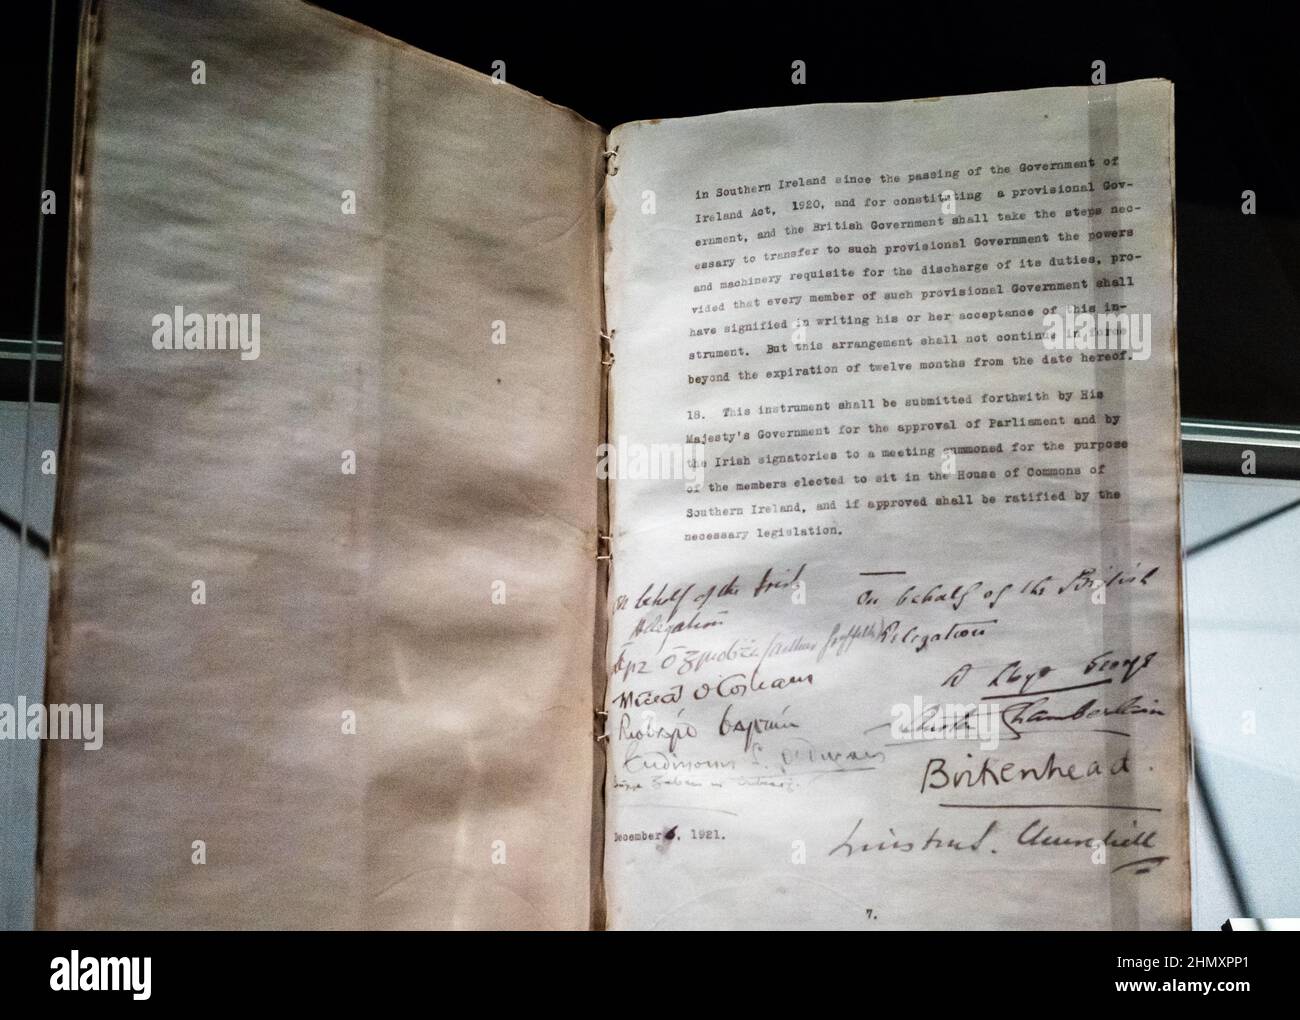 in Southern Ireland since the passing of the Government of
Ireland Act, 1920, and for constituting a provisional Gov-
ernment, and the British Government shall take the steps nec-
essary to transfer to such provisional Government the powers
and machinery requisite for the discharge of its duties, pro-
vided that every member of such provisional Government shall
have signified in writing his or her acceptance of this in-
strument. But this arrangement shall not continue in force
beyond the expiration of twelve months from the date hereof.
18. This instrument shall be submitted forthwith by His
Majesty's Government for the approval of Parliament and by
the Irish signatories to a meeting summoned for the purpose
of the members elected to sit in the House of Commons of
Southern Ireland, and if approved shall be ratified by the
necessary legislation.
On behalf of the Irish
Delegation
Art Ó Gríobhtha (Arthur Griffith)
Mícheál Ó Coileain
Riobárd Bartún
December 6, 1921.
On behalf of the British
Delegation
D Lloyd George
Austen Chamberlain
Birkenhead.
Winston S. Churchill
7.
alamy
alamy
alamy
Image ID: 2HMXPP1
www.alamy.com